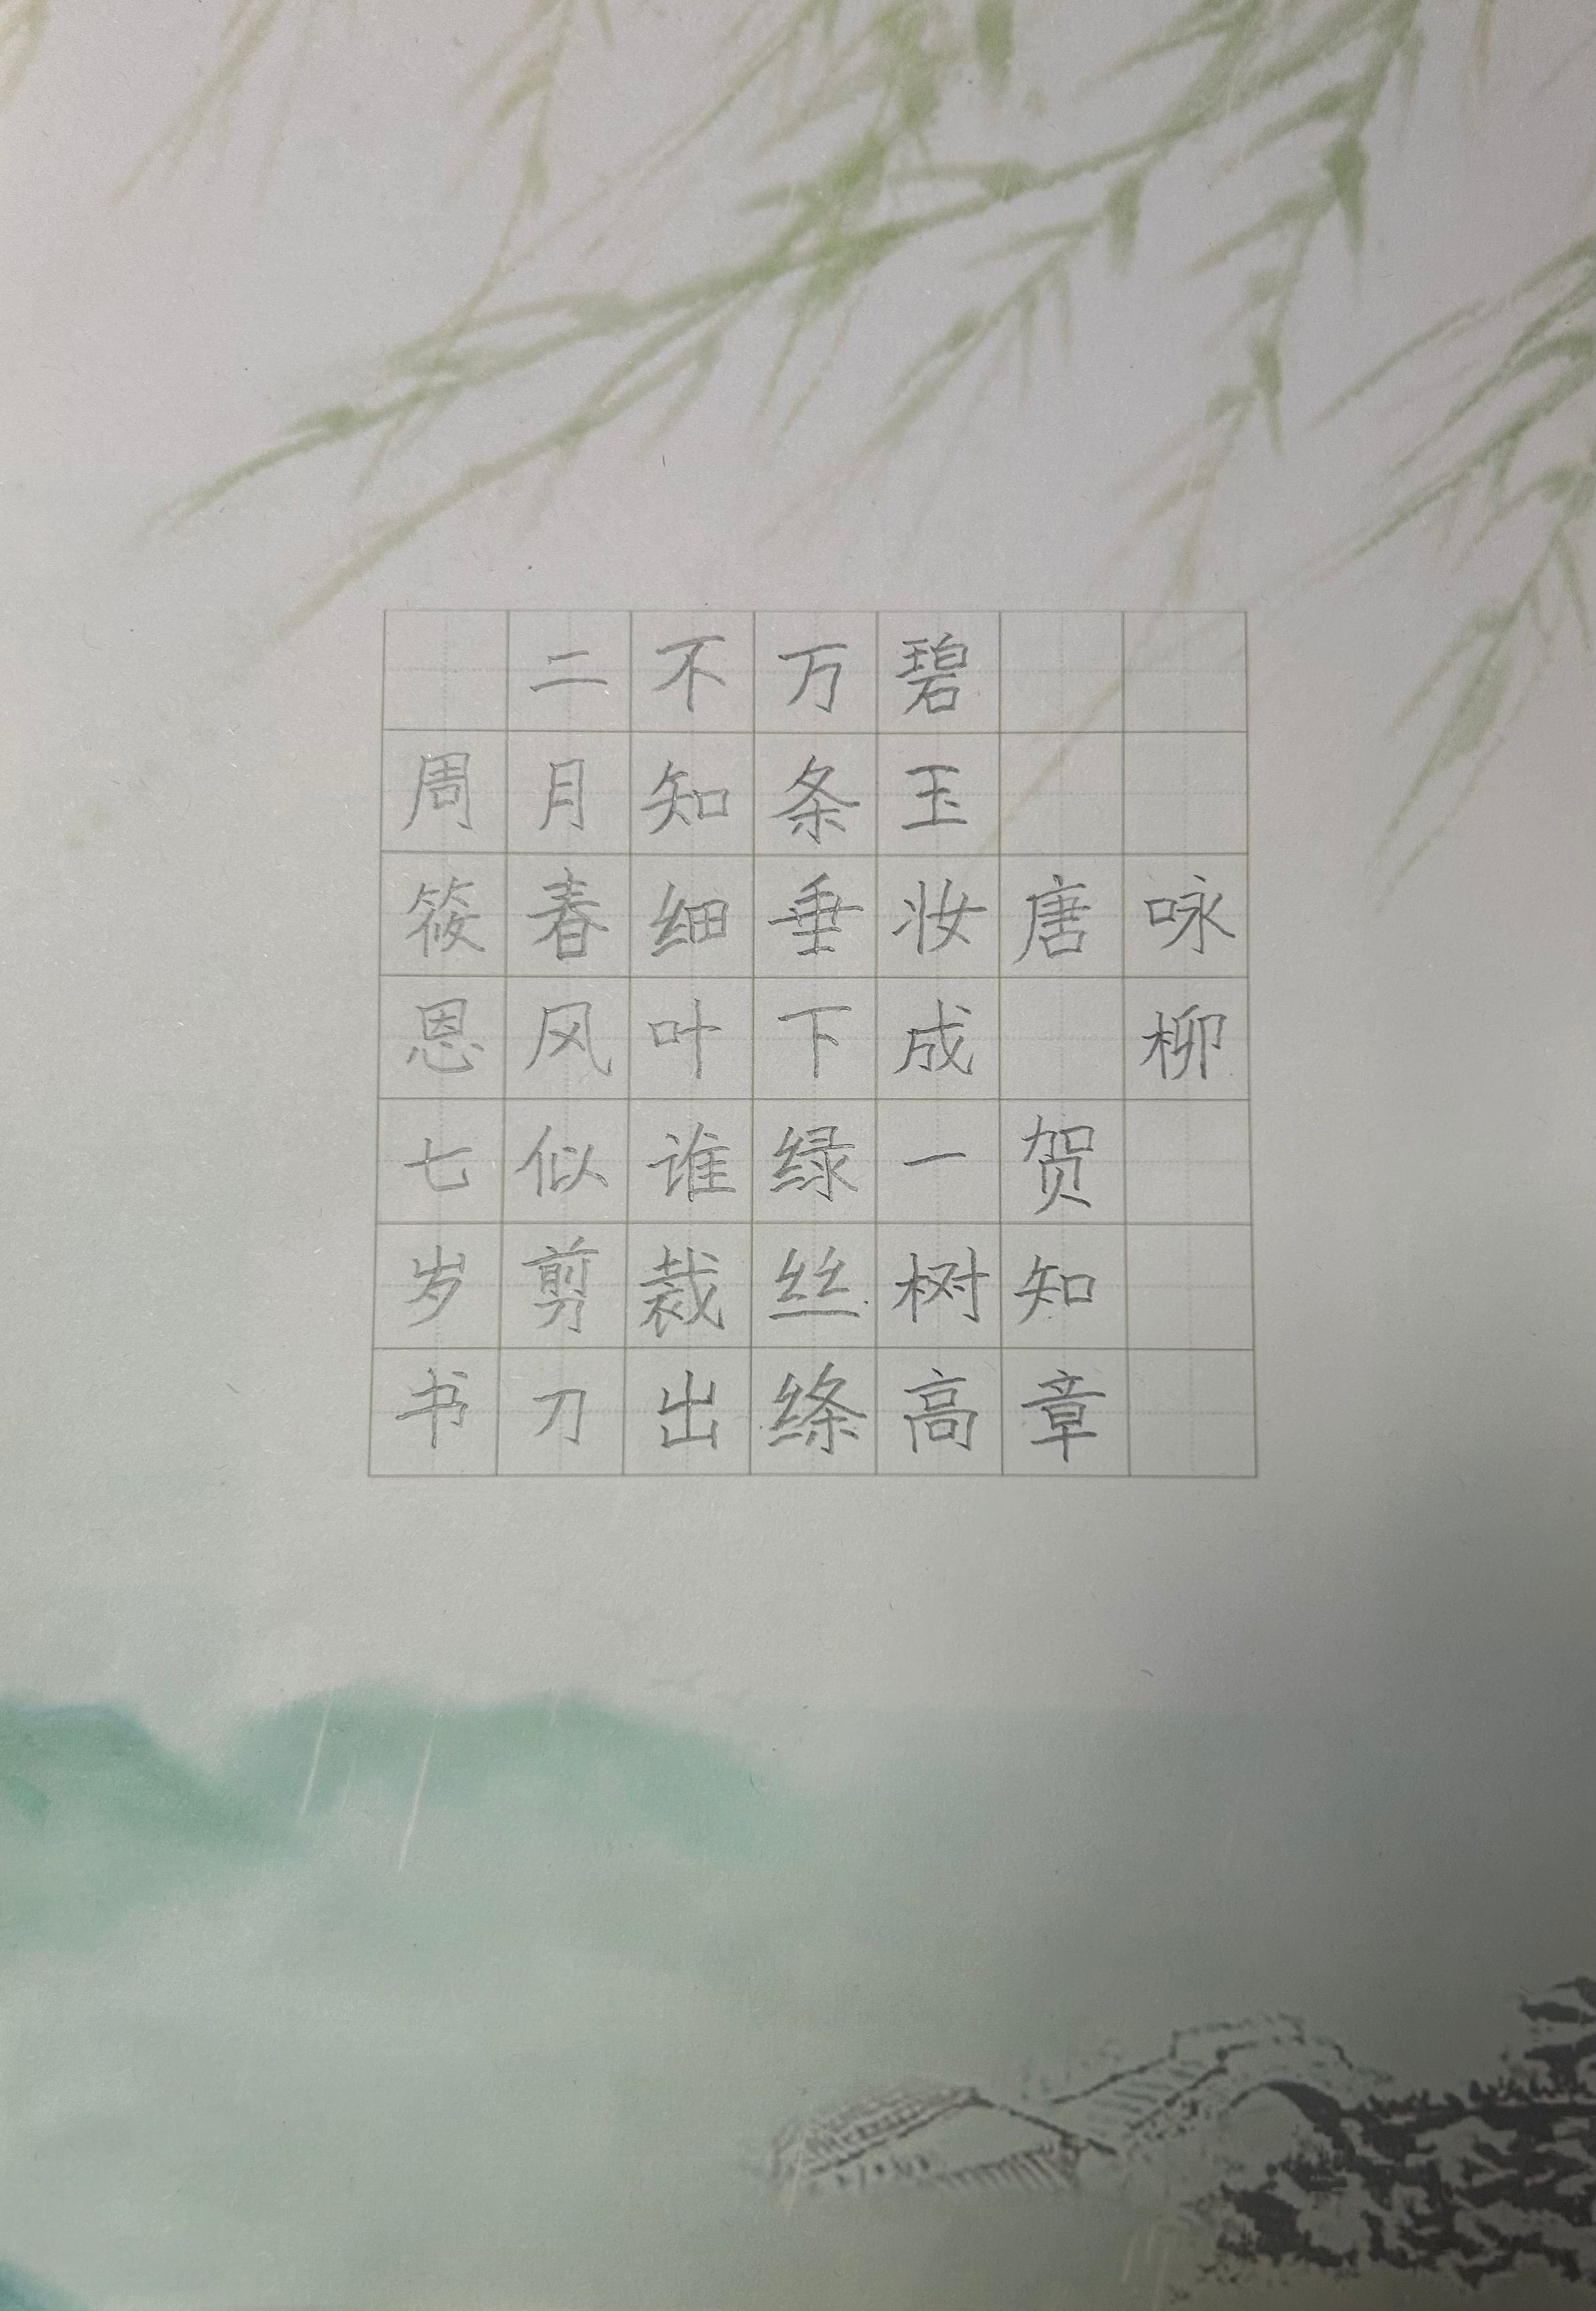 咏柳
唐 贺知章
碧玉妆成一树高
万条垂下绿丝绦
不知细叶谁裁出
二月春风似剪刀
周筱恩七岁书